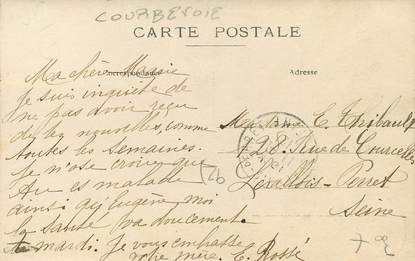 COURBEVOIE
CARTE POSTALE
Correspondance
Adresse
Ma chère
Je suis inquiète de
ne pas avoir reçu
de tes nouvelles, comme
toutes les semaines.
Je n'ose croire que
tu es malade
ainsi qu'Eugène, moi
la santé va doucement.
à mardi. Je vous embrasse
votre mère. E. Rossé
Madame E. Thibault
728 Rue de Courcelles
Levallois-Perret
Seine
92